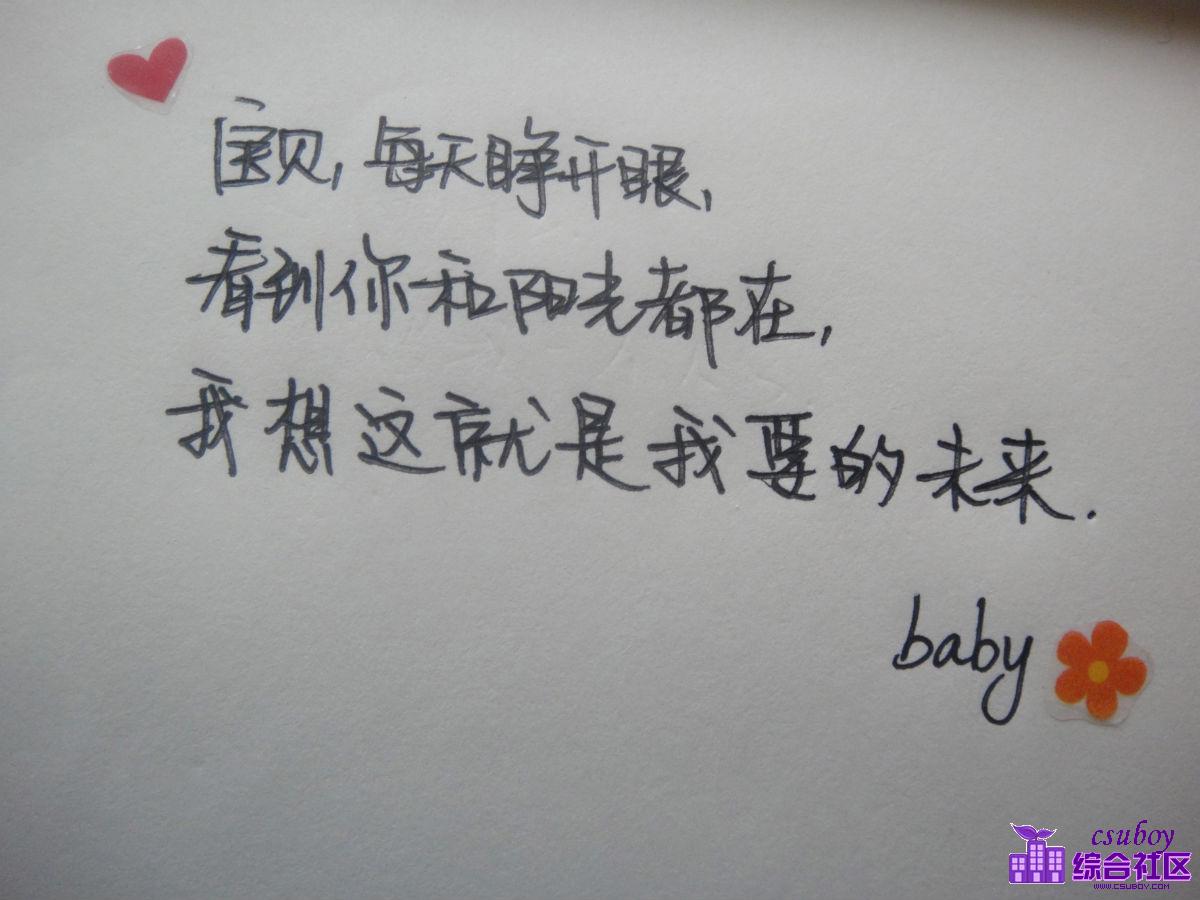 宝贝,每天睁开眼,
看到你和阳光都在,
我想这就是我要的未来.
baby
csuboy
综合社区
WWW.CSUBOY.COM